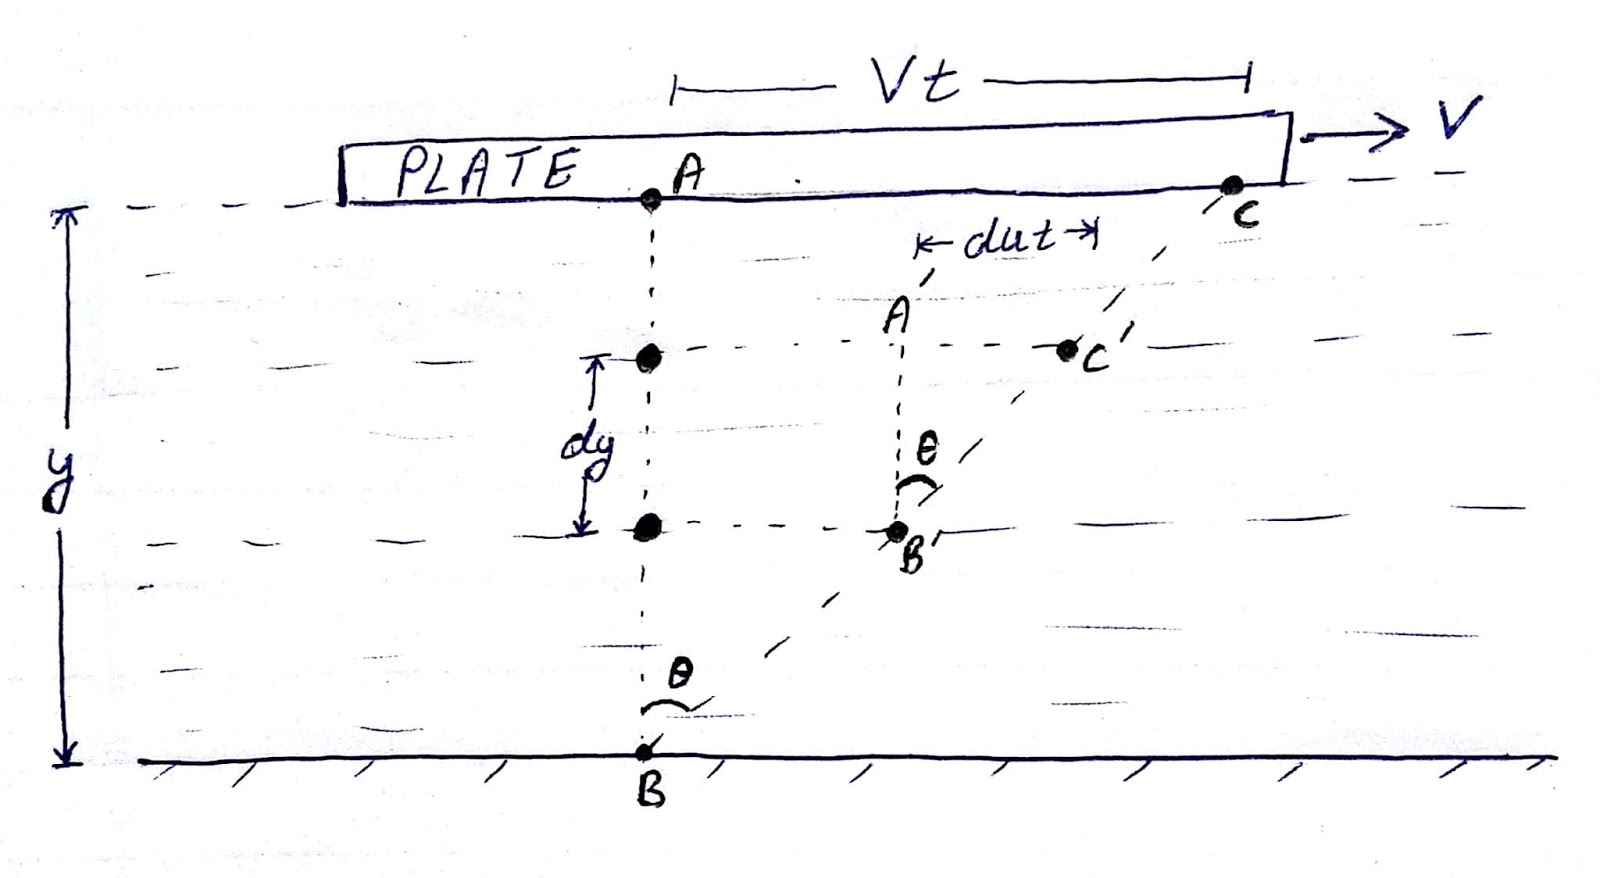 Vt
V
PLATE
A
C
dut
A'
C'
dy
θ
y
B'
θ
B